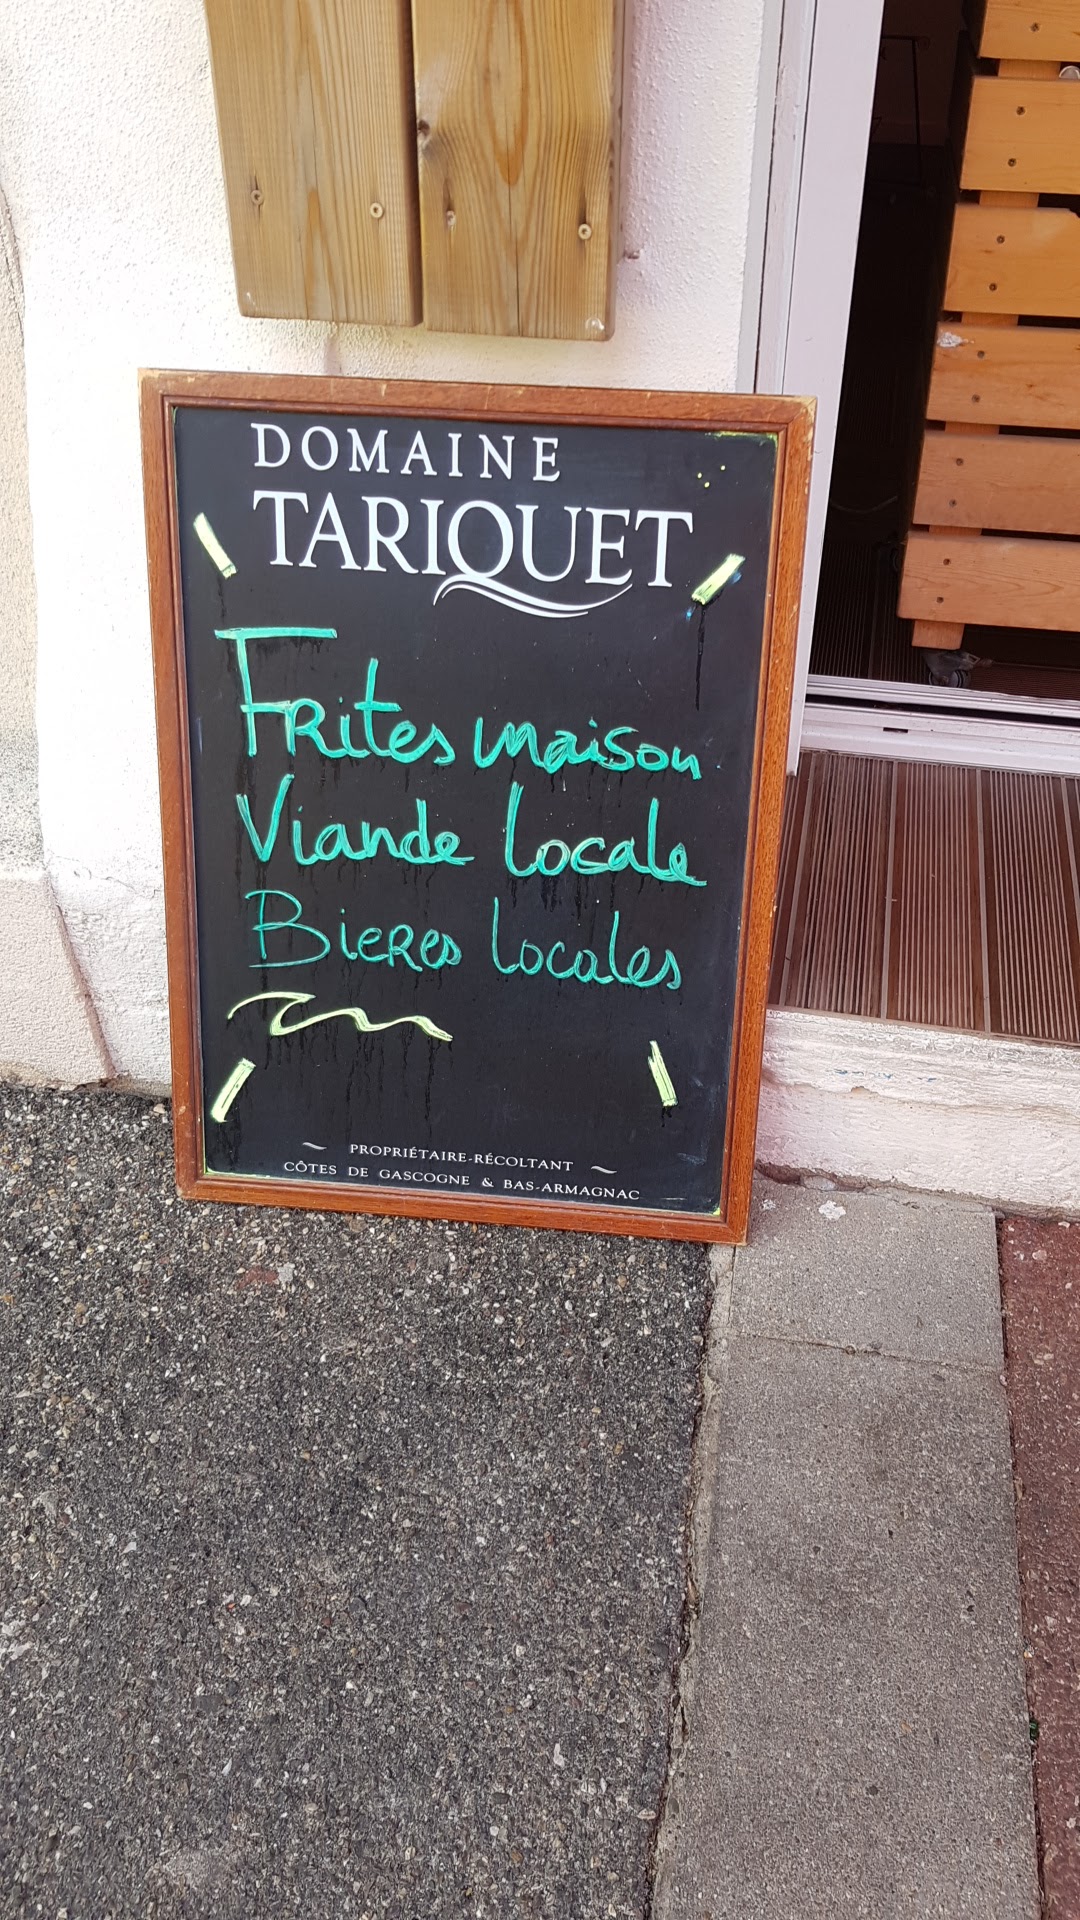 DOMAINE
TARIQUET
Frites maison
Viande locale
Bieres locales
PROPRIÉTAIRE-RÉCOLTANT
CÔTES DE GASCOGNE & BAS-ARMAGNAC